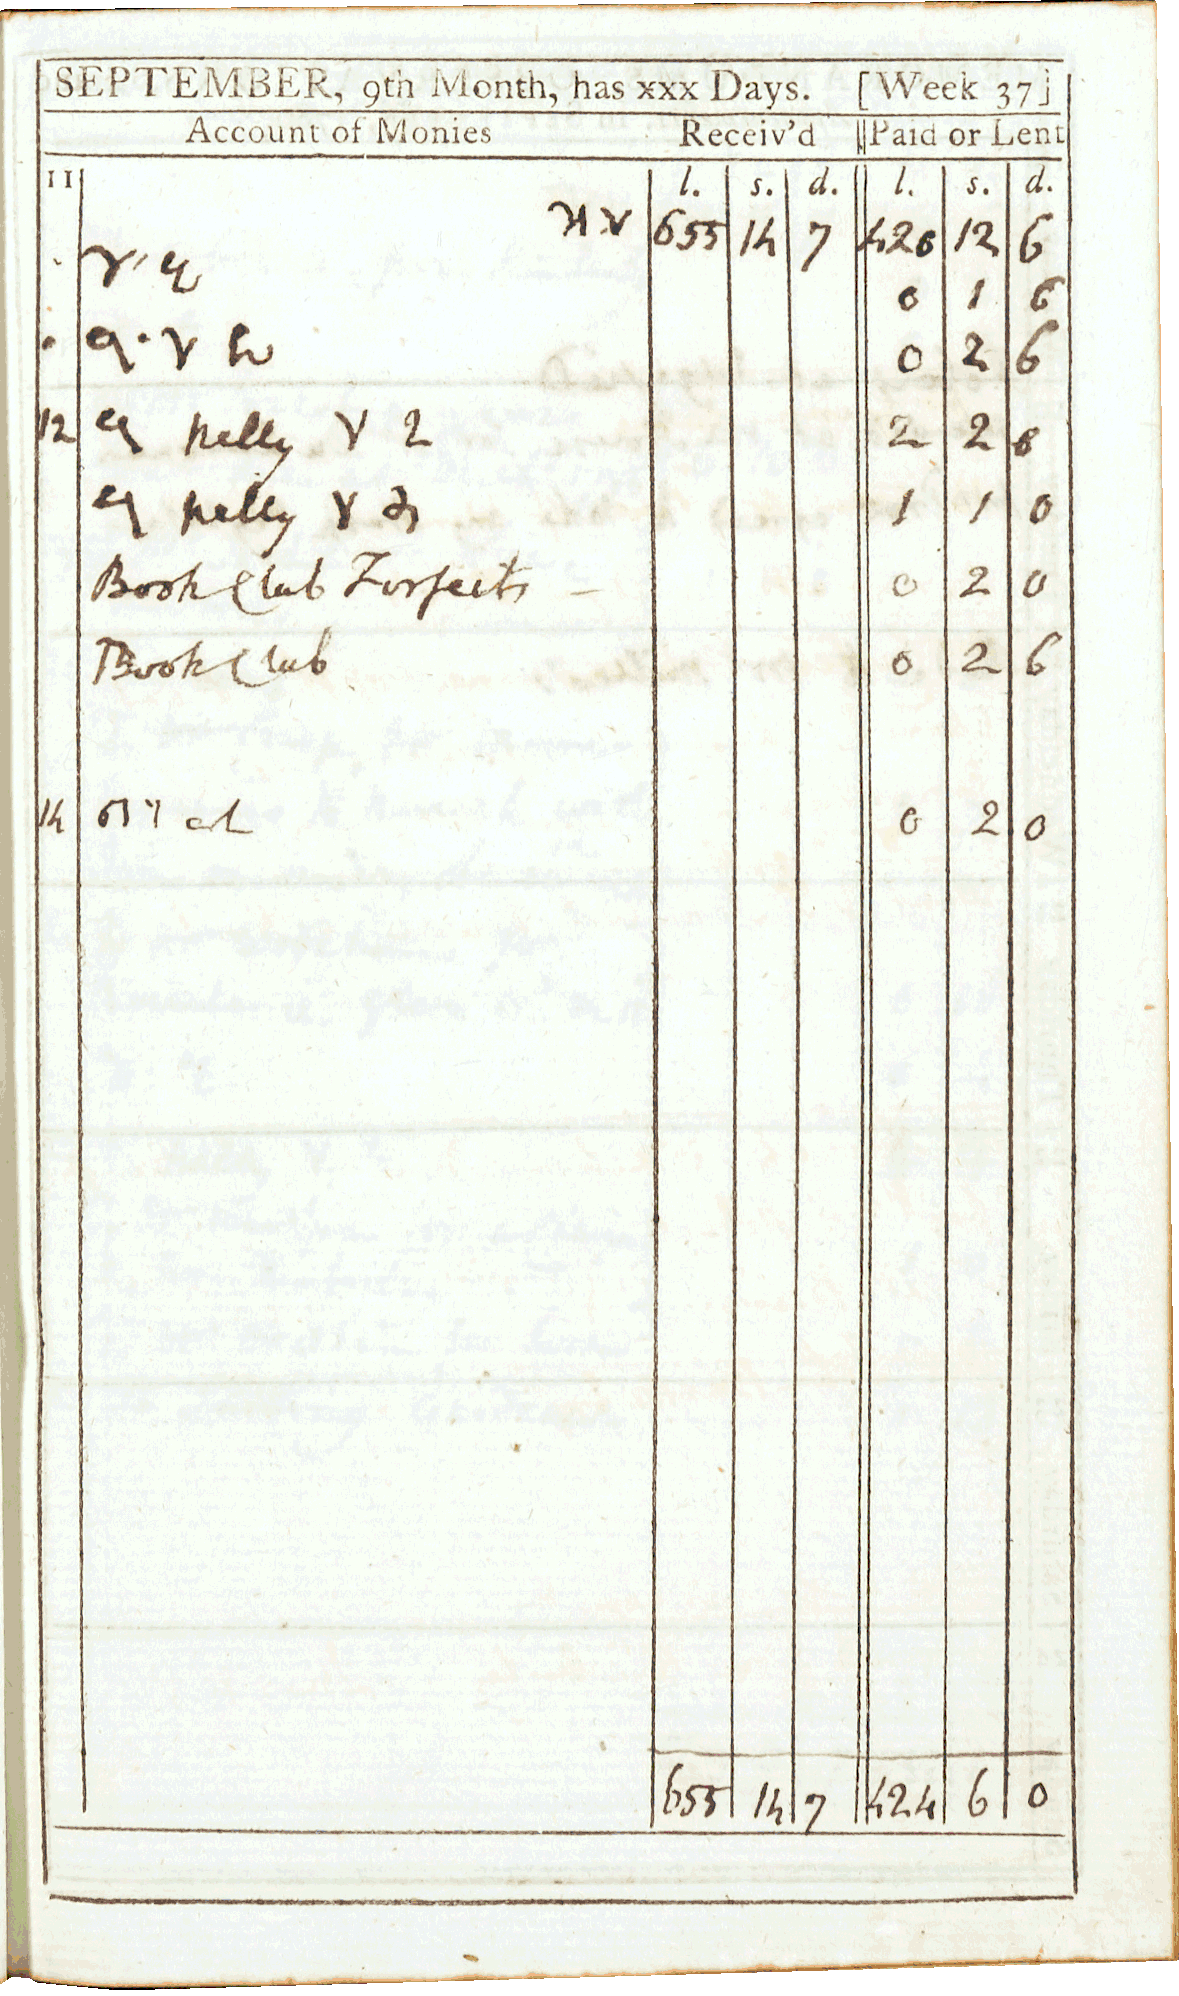 SEPTEMBER, 9th Month, has xxx Days. [Week 37]
Account of Monies Receiv'd Paid or Lent
11 l. s. d. l. s. d.
655 14 7 420 12 6
0 1 6
0 2 6
12 2 2 0
1 1 0
Book Club Forfeits – 0 2 0
Book Club 0 2 6
14 0 2 0
655 14 7 424 6 0